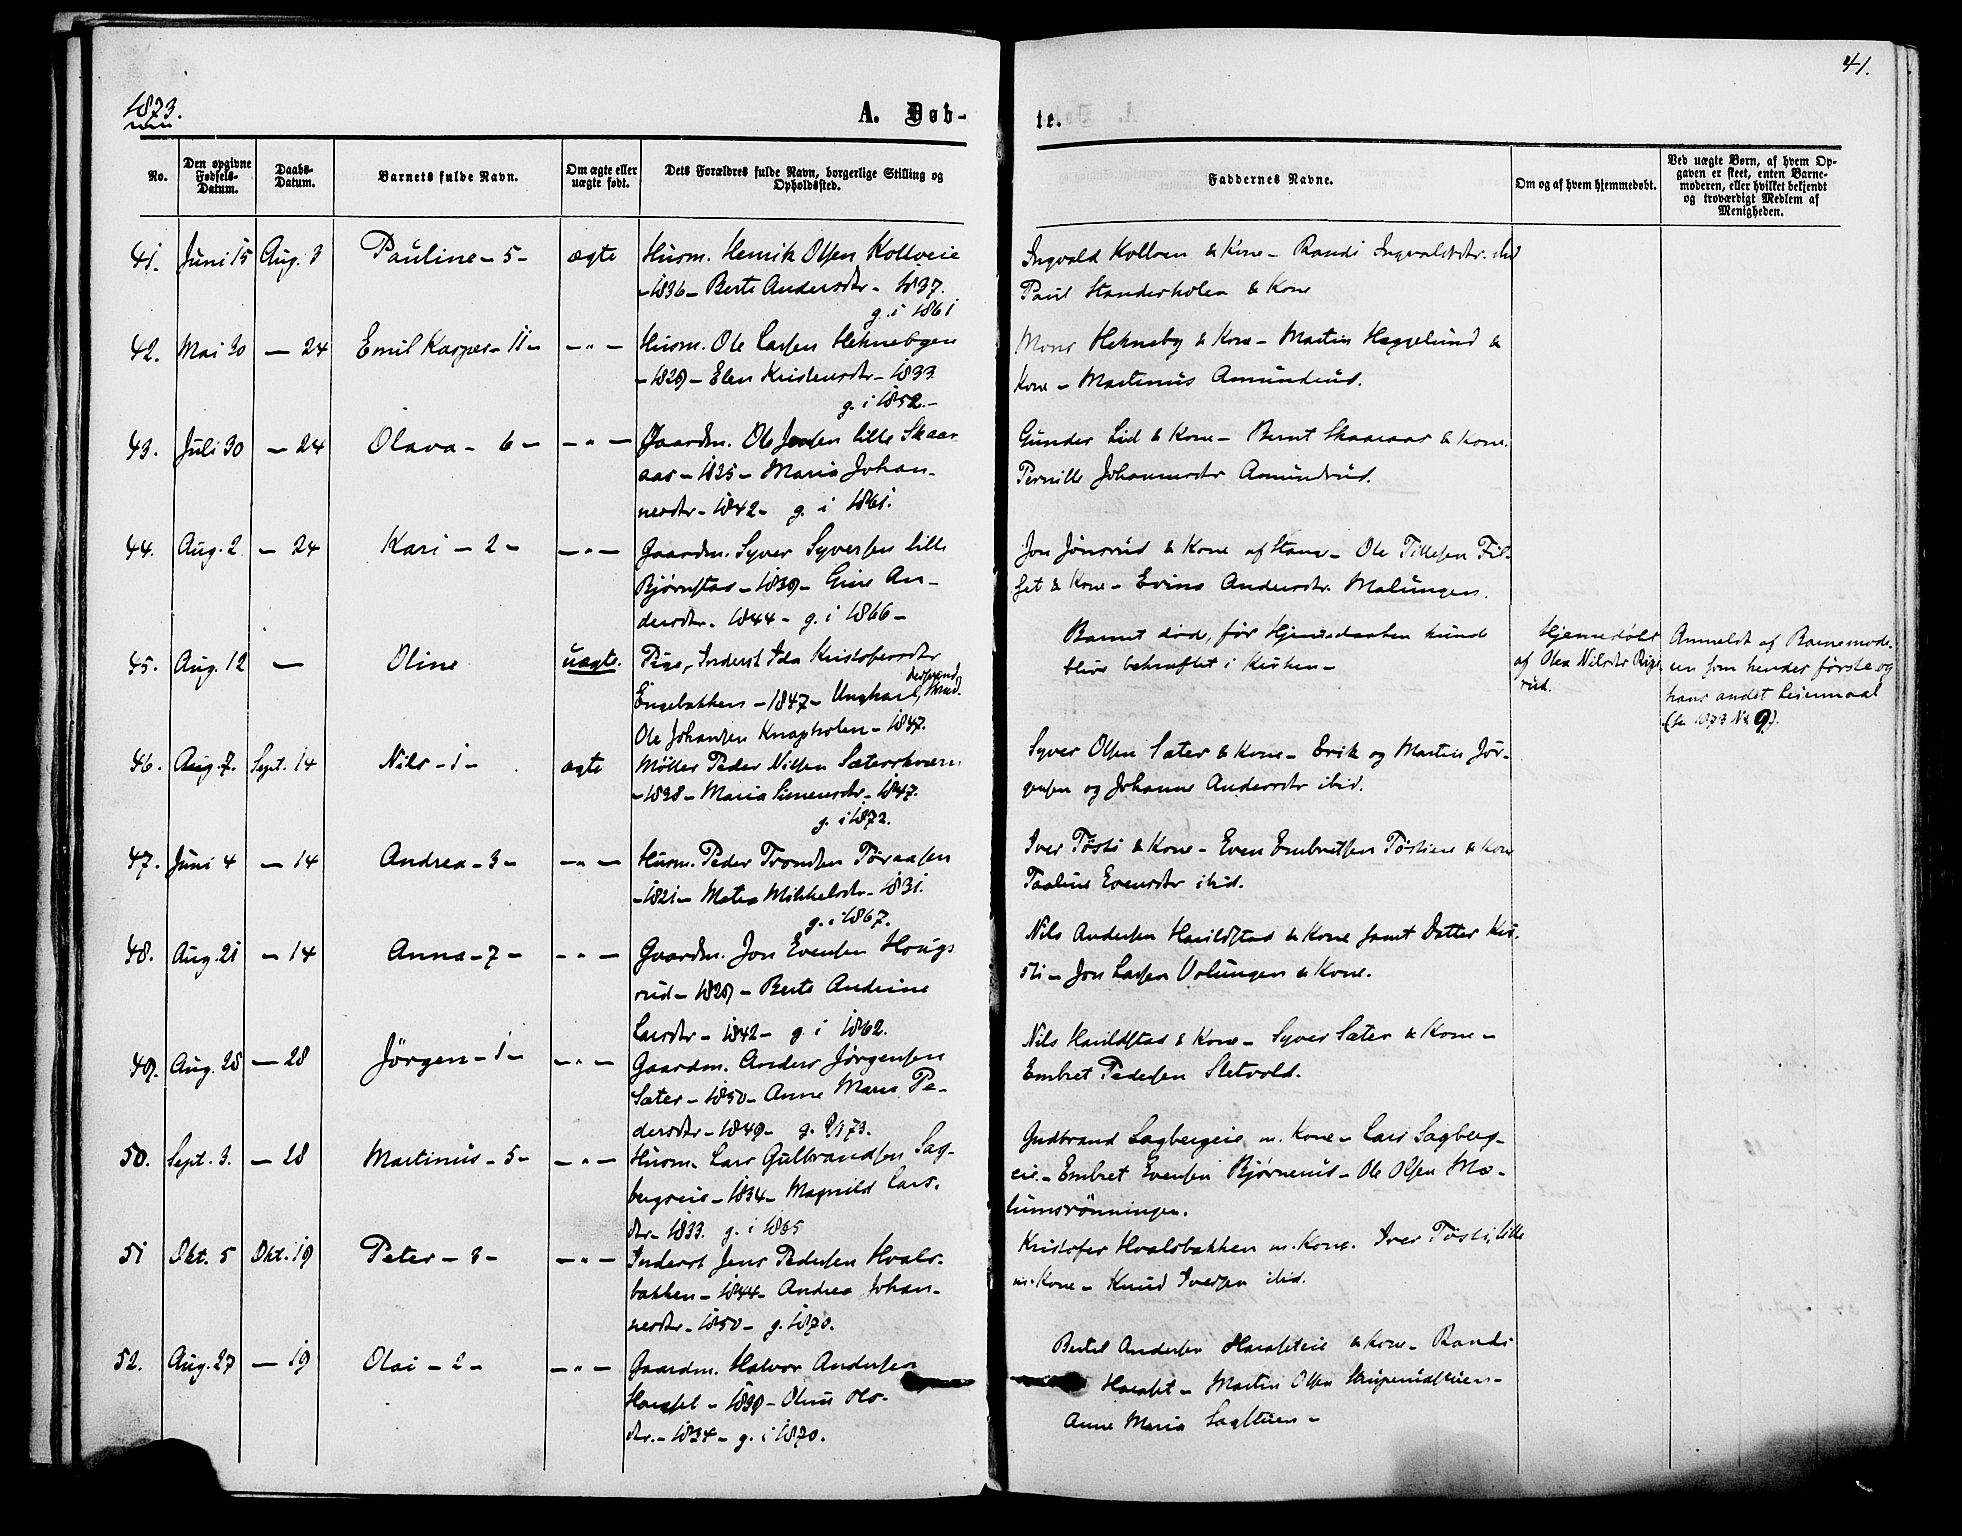 1873.
A. Døb-
te.
41.
No.
Den opgivne Fødsels-Datum.
Daabs-Datum.
Barnets fulde Navn.
Om ægte eller uægte født.
Dets Forældres fulde Navn, borgerlige Stilling og Opholdssted.
Faddernes Navne.
Om og af hvem hjemmedøbt.
Ved uægte Børn, af hvem Opgaven er skeet, enten Barnemoderen, eller hvilket bekjendt og troværdigt Medlem af Menigheden.
41. Juni 15 Aug. 3 Pauline - 5 - ægte Husm. Henrik Olsen Kollveie
- 1836 - Berte Andersdtr - 1837.
g. i 1861
Ingvald Kollven & Kone - Randi Ingvaldsdtr. ibid
Paul Standerholen & Kone
42. Mai 30 - 24 Emil Kasper - 11 - - " - Husm. Ole Larsen Heknebyeie
- 1829 - Elen Kristensdtr - 1833
g. i 1852 -
Mons Hekneby & Kone - Martin Heggelund &
Kone - Martinus Amundrud.
43. Juli 30 - 24 Olava - 6 - - " - Gaardm. Ole Jensen lille Skaar
aas - 1825 - Maria Johan-
nesdtr - 1842 - g. i 1861.
Gunder Lid & Kone - Bernt Skaaraas & Kone.
Pernille Johannesdtr Amundrud.
44. Aug. 2 - 24 Kari - 2 - - " - Gaardm. Syver Syversen lille
Bjørnstad - 1839 - Gine An-
dersdtr. 1844 - g. i 1866 -
Jon Jønsrud & Kone af Stange - Ole Tillesen Fil-
set & Kone - Evine Andersdtr. Malungen.
45. Aug. 12 - Oline uægte. Pige, Inderst Ida Kristofersdtr
Engebakken - 1847 - Ungkarl,
Ole Johansen Knapholen - 1847.
Barnet død, før Hjemmedaaben kunde
blive bekræftet i Kirken -
Hjemmedøbt
af Olea Nilsdtr
rud.
Anmeldt af Barnemode-
ren som hendes første og
hans andet Leiermaal
(se 1873 No 9).
46. Aug. 7. Sept. 14 Nils - 1 - ægte Møller Peder Nilsen Sæterskværn
- 1838 - Maria Simensdtr - 1847.
g. i 1872.
Syver Olsen Sæter & Kone - Erik og Martin Jør-
gensen og Johanne Andersdtr ibid.
47. Juni 4 - 14 Andrea - 3 - - " - Husm. Peder Trondsen Tøraasen
- 1821 - Mathea Mikkelsdtr - 1831.
g. i 1867.
Iver Tøsti & Kone - Even Embretsen Tøstieie & Kone
Tæaline Evensdtr ibid.
48. Aug. 21 - 14 Anna - 7 - - " - Gaardm. Jon Evensen Hougs
rud - 1829 - Berte Andrine
Larsdtr - 1842 - g. i 1862.
Nils Andersen Harildstad & Kone samt Datter Kri-
sti - Jon Larsen Volungen & Kone.
49. Aug. 25 - 28 Jörgen - 1 - - " - Gaardm. Anders Jørgensen
Sæter - 1850 - Anne Marie Pe-
dersdtr - 1849 - g.
Nils Harildstad & Kone - Syver Sæter & Kone -
Embret Pedersen Sletvold.
50. Sept. 3. - 28 Martinus - 5 - - " - Husm. Lars Gulbrandsen Sag-
bergseie - 1834 - Magnild Lars-
dtr - 1833. g. i 1855
Gudbrand Sagbergeie m. Kone - Lars Sagberg-
eie - Embret Evensen Bjørnerud - Ole Olsen Mæ-
lumsrönningen.
51 Okt. 5 Okt. 19 Peter - 3 - - " - Inderst Jens Pedersen Hvals-
bakken - 1844 - Andrea Johan-
nesdtr - 1850 - g. 1870.
Kristofer Hvalsbakken m. Kone. Iver Tøsti, lille
m. Kone - Knud Iversen ibid.
52. Aug. 27 - 19 Olai - 2 - - " - Gaardm. Halvor Andersen
Horaset - 1839 - Oline Ols-
dtr. - 1834 - g. i 1870.
Bertel Andersen Horaseteie & Kone - Randi
Horaset - Martin Olsen
Anne Maria Sagstuen -